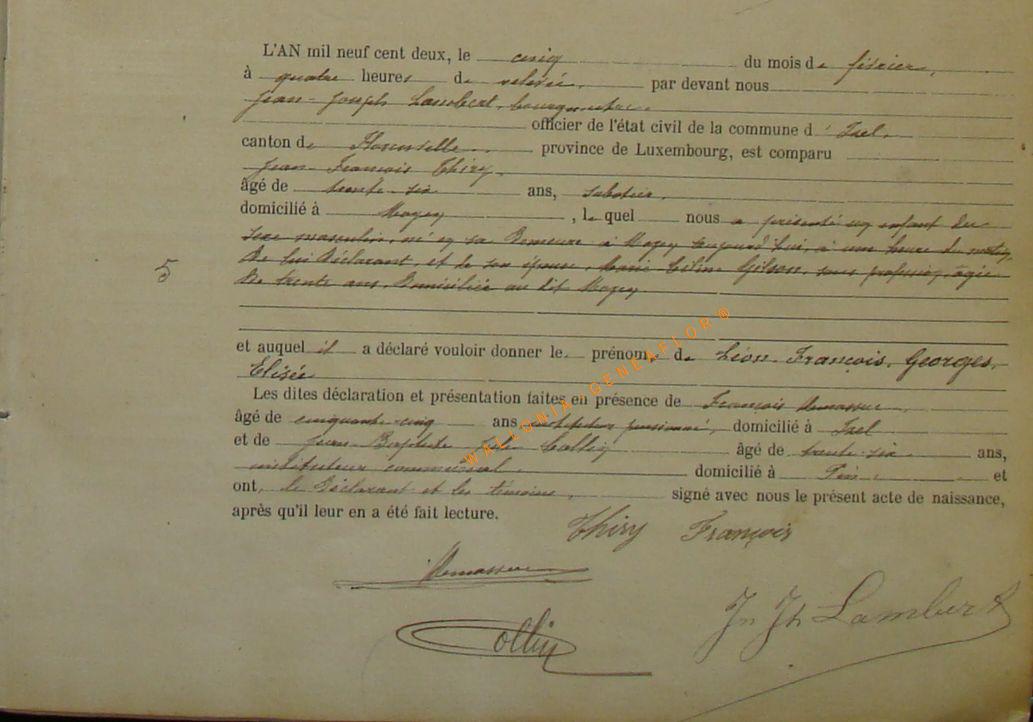 L'AN mil neuf cent deux, le cinq du mois de février,
à quatre heures de relevée, par devant nous
Jean-Joseph Lambert, bourgmestre,
officier de l'état civil de la commune d' Izel,
canton de Florenville, province de Luxembourg, est comparu
Jean François Thiry,
âgé de trente-six ans, sabotier,
domicilié à Moyen, lequel nous a présenté un enfant du
sexe masculin, né en sa demeure à Moyen aujourd'hui, à une heure du matin,
5
de lui déclarant, et de son épouse, Marie Gilson, sans profession, âgée
de trente ans, domiciliée au dit Moyen
et auquel il a déclaré vouloir donner le prénom de Léon François, Georges,
Elisée
Les dites déclaration et présentation faites en présence de François
âgé de cinquante-cinq ans instituteur pensionné, domicilié à Izel
et de Jean Baptiste Collin âgé de trente-six ans,
instituteur communal domicilié à Pin et
ont, le déclarant et les témoins, signé avec nous le présent acte de naissance,
après qu'il leur en a été fait lecture.
Thiry François
Collin
Jn Jh Lambert
WALLONIA-GENEAFLOR ®